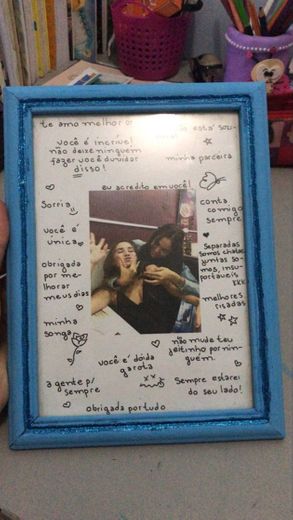 te amo melhor
está
você é incrível
não deixe ninguém
fazer você duvidar
disso!
minha parceira
eu acredito em você!
Sorria
conta
comigo
sempre
você é
única
Separadas
somos chatas
juntas so-
mos, insu-
portáveis
KKK
obrigada
por me-
lhorar
meus dias
melhores
risadas
minha
não mude teu
jeitinho por nin-
guém
você é dóida
garota
a gente p/
sempre
Sempre estarei
do seu lado!
obrigada por tudo